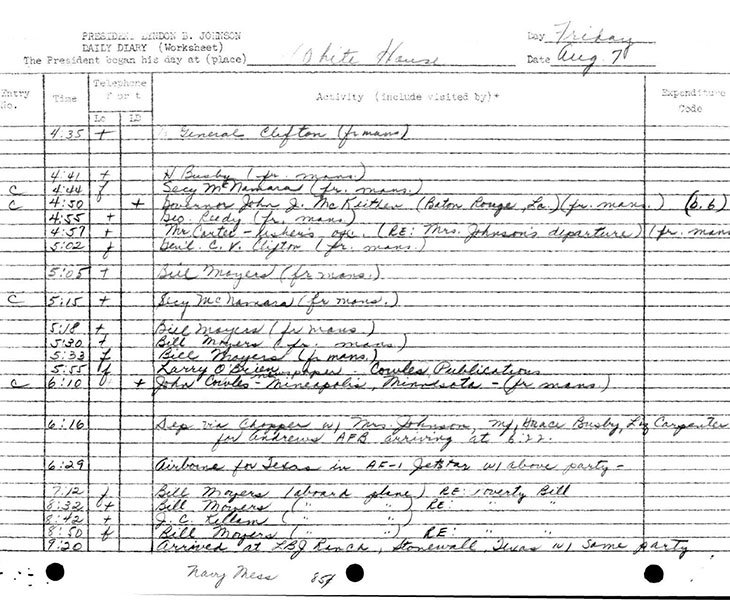 PRESIDENT LYNDON B. JOHNSON
DAILY DIARY (Worksheet)
The President began his day at (place) White House
Day Friday
Date Aug. 7
Entry No. Time Telephone f or t Lo LD Activity (include visited by)* Expenditure Code
4:35 t General Clifton (fr mans)
4:41 t H Busby (fr. mans.)
C 4:44 f Secy McNamara (fr. mans.)
C 4:50 t Governor John J. McKeithen (Baton Rouge, La.) (fr. mans.) (b.b)
4:55 t Geo. Reedy (fr. mans.)
4:57 t Mr. Carter - Usher's ofc. (RE: Mrs. Johnson's departure) (fr. mans
5:02 f Genl. C. V. Clifton (fr. mans.)
5:05 t Bill Moyers (fr mans.)
C 5:15 t Secy McNamara (fr mans.)
5:18 t Bill Moyers (fr mans.)
5:30 t Bill Moyers (fr. mans.)
5:33 f Bill Moyers (fr mans.)
5:55 f Larry O'Brien
newspaper - Cowles Publications
C 6:10 t John Cowles - Mineapolis, Minnesota - (fr mans.)
6:16 Dep via Chopper w/ Mrs. Johnson, M/M Horace Busby, Liz Carpenter
for Andrews AFB arriving at 6:22.
6:29 Airborne for Texas in AF-1 JetStar w/ above party -
7:12 f Bill Moyers (aboard plane) RE: Poverty Bill
8:32 t Bill Moyers ( " " ) RE: " "
8:42 t J. C. Kellam ( " " )
8:50 f Bill Moyers ( " " ) RE: " "
9:20 Arrived at LBJ Ranch, Stonewall, Texas w/ same party
Navy Mess 85¢